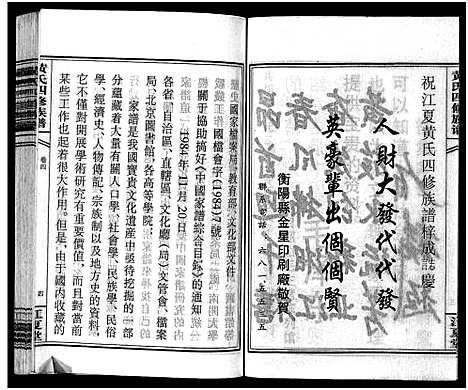 黄氏四修族谱
祝江夏黄氏四修族譜梓成誌慶
人財大發代代發
英豪輩出個個賢
衡陽縣金星印刷廠敬賀
聯系電話：六八一五五三五
歷史國家檔案局、教育部、文化部文件
國檔會字(1984)7號
關于協助搞好《中國家譜綜合目録》的通知
1984年11月20日
各省、自治區、直轄區、文化廳(局)、文管會、檔案
局，北京圖書館，各高等學院：
家譜是我國寶貴文化遺産中亟待挖掘的一部
分，蘊藏着大量有關人口學、社會學、民族學、民俗
學、經濟史、人物傳記、宗族制以及地方史的資料，
它對開展學術研究有重要價值，而且對當前
某些工作也起着很大作用。但是，由于國内收藏的
黄氏四修族譜
卷四
四
江夏堂